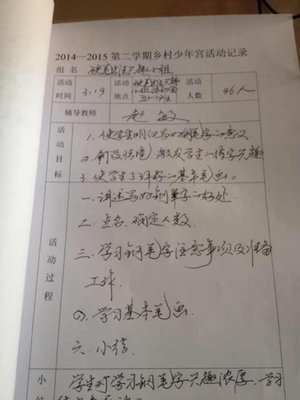 2014—2015 第二学期乡村少年宫活动记录
组 名 硬笔书法兴趣小组
活动时间 3.19 活动地点 活动人数 46人
辅导教师 赵敏
活动目标 1.使学生明白写好钢笔字的意义
2.创设情境,激发学生的习字兴趣
3.使学生了解字的基本笔画。
活动过程
一.讲述写好钢笔字的好处
二.点名.确定人数.
三.学习钢笔字注意事项及准备
工作.
四.学习基本笔画.
六.小结.
小 学生对学习钢笔字兴趣浓厚,学习